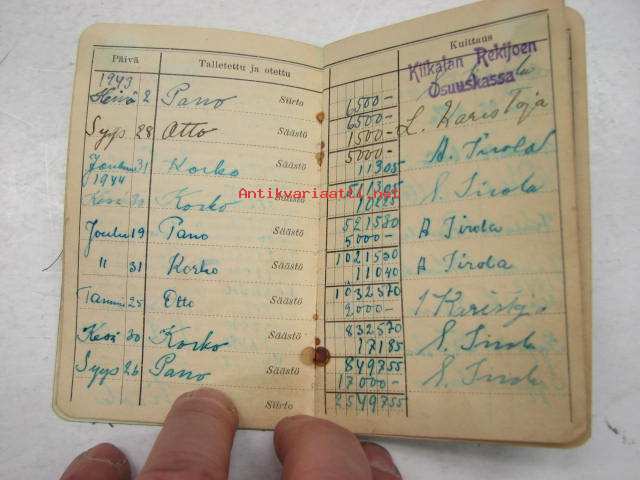 Päivä Talletettu ja otettu Kuittaus
1943 Kiikalan Rekijoen Osuuskassa
Heinä 2 Pano Siirto 6500-
6500-
Syys 28 Otto Säästö 1500- L. Karistoja
5000-
Joulu 31 Korko Säästö 11305 A. Tirola
1944 511305
Kesä 30 Korko Säästö 10275 S. Tirola
521580
Joulu 19 Pano Säästö 5000- A Tirola
1021580
" 31 Korko Säästö 11040 A Tirola
1032570
Tammi 25 Otto Säästö 2000- L Karistoja
832570
Kesä 30 Korko Säästö 17185 S. Tirola
849755
Syys 26 Pano Säästö 17000- S. Tirola
Siirto 2549755
Antikvariaatti.net